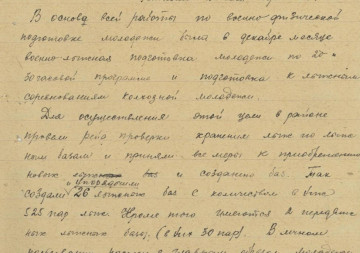 В основа всей работы по военно-физической
подготовке молодежи была в декабре месяце
военно-лыжная подготовка молодежи по 20-
часовой программе и подготовка к лыжным
соревнованиям колхозной молодежи.
Для осуществления этой цели в районе
провели рейд проверки хранения лыж по лыж-
ным базам и приняли все меры к приобретению
новых и созданию баз. Так
создали 26 лыжных баз с количеством в них
525 пар лыж. Кроме того имеются 2 передвиж-
ных лыжных базы, (в них 30 пар). В личном